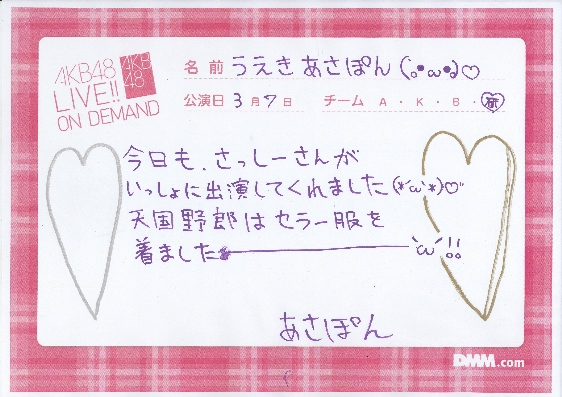 AKB48
LIVE!!
ON DEMAND
AKB
48
名前 うえきあさぽん (｡•ω•｡)♡
公演日 3月7日 チーム A・K・B・研
今日も、さっしーさんが
いっしょに出演してくれました(*'ω'*)♡"
天国野郎はセラー服を
着ました━━━━━━`ω´!!
あさぽん
DMM.com